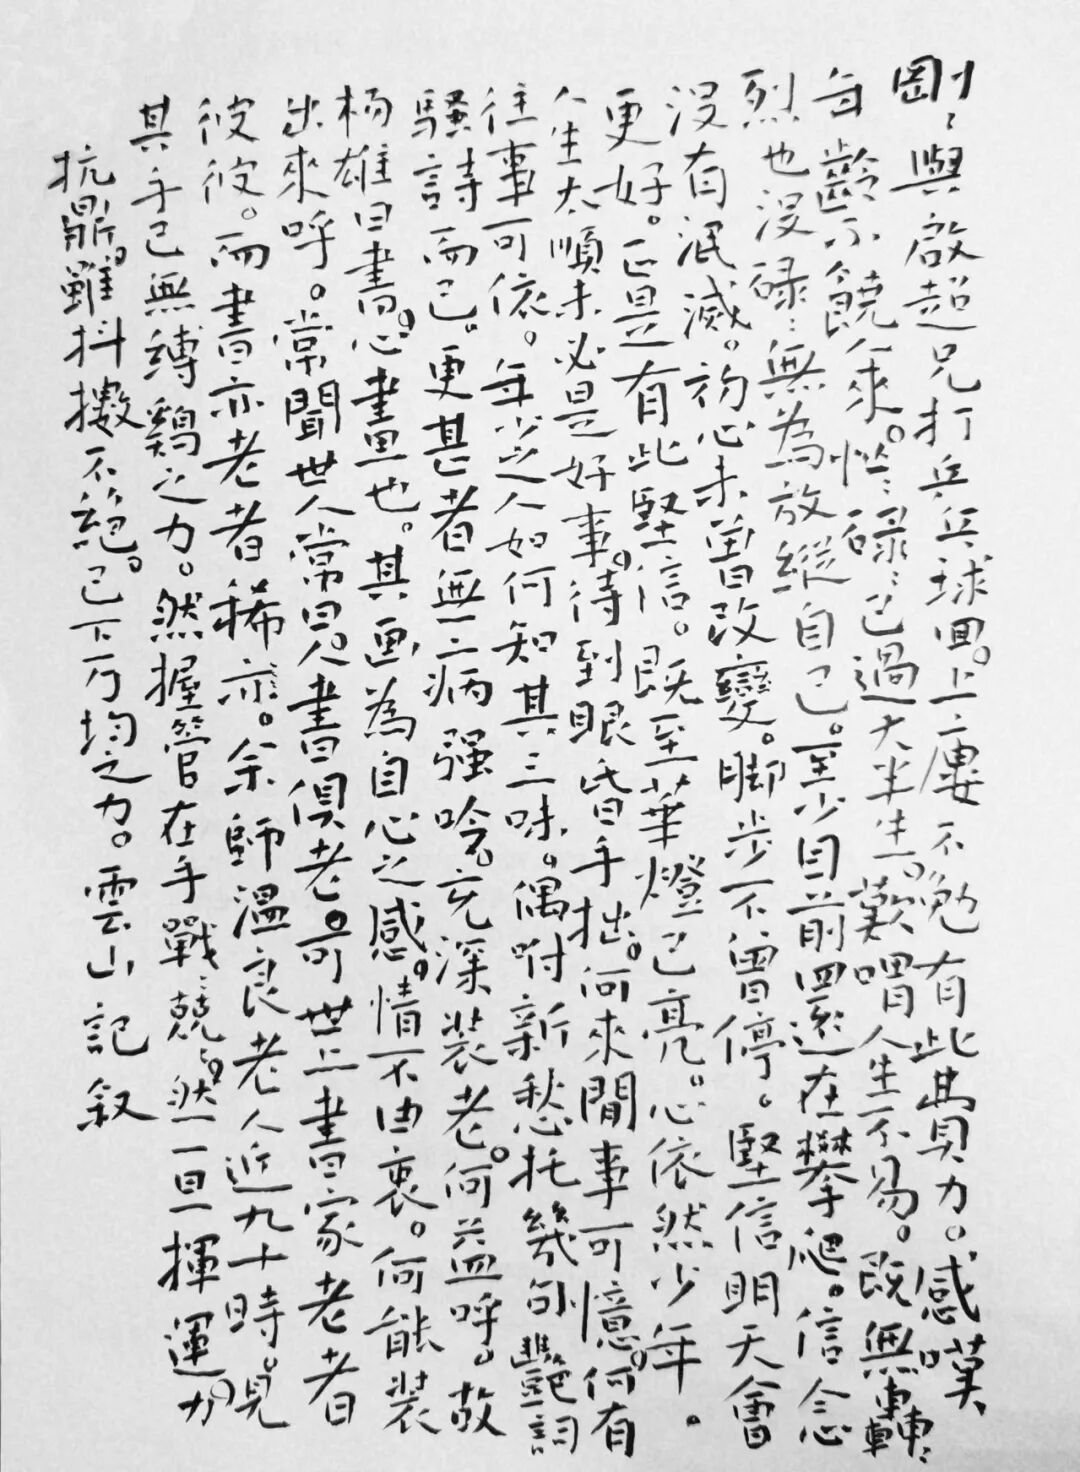 剛〻與啟超兄打乒乓球回。上廔不勉有此費力。感嘆
年齡不饒年來。忙〻碌〻已過大半生。歎喟人生不易。既無轟〻
烈也没碌〻無為放縱自己。至少目前還在攀爬。信念
没有泯滅。初心未曾改變。脚步不曾停。堅信明天會
更好。正是有此堅信。既至華燈已亮。心依然少年。
人生太順未必是好事。待到眼昏手拙。何來閒事可憶。何有
往事可依。年少之人如何知其三味。偶咐新愁托幾句艷詞
騷詩而已。更甚者無病强唫。充深装老。何益呼。故
杨雄曰書。心畫也。其画為自心之感。情不由衷。何能装
出來呼。常聞世人常曰。人書俱老。可世上書家老者
彼彼。而書亦老者稀亦。余師溫良老人近九十時。見
其手已無縛鷄之力。然握管在手戰〻兢〻。然一旦揮運。力
抗鼎。雖抖擻不絕。已下万均之力。雲山記叙